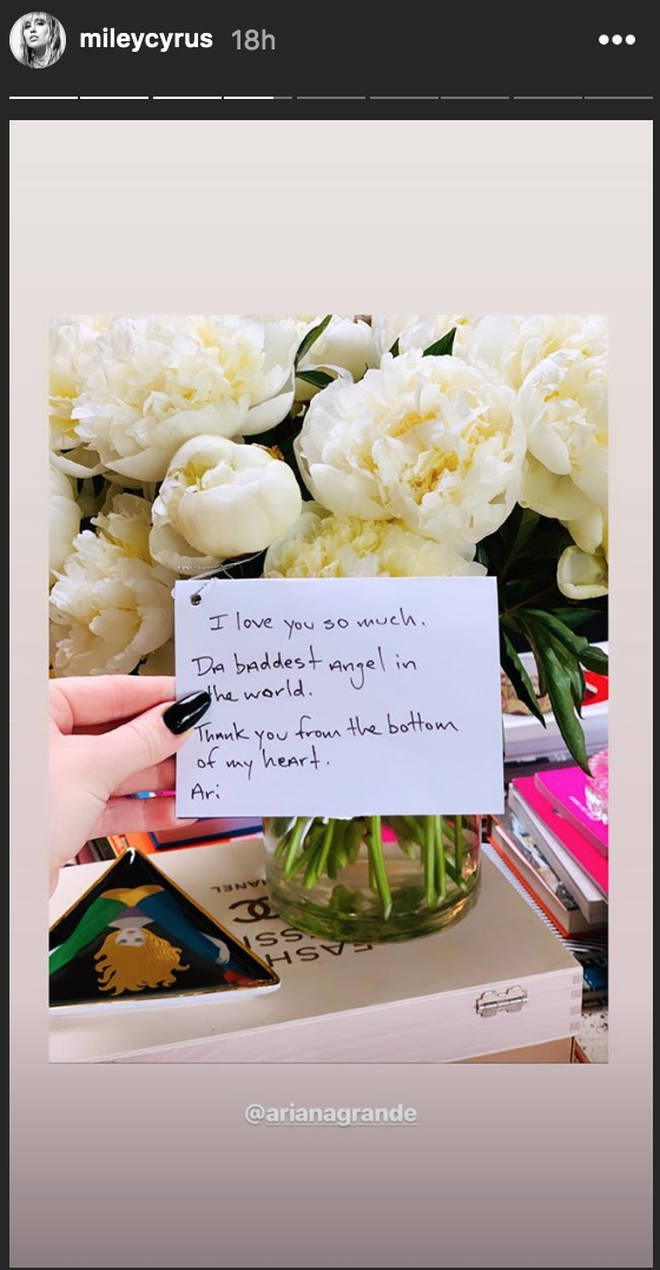 mileycyrus 18h
I love you so much.
Da baddest angel in
the world.
Thank you from the bottom
of my heart.
Ari
CHANEL
FASH
SSI
@arianagrande